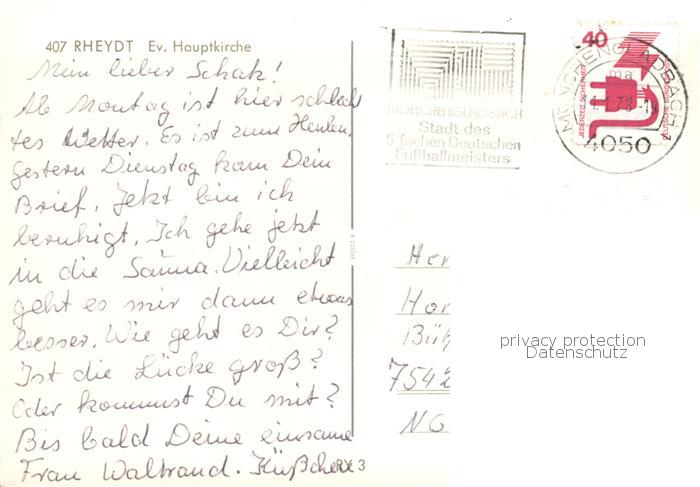 407 RHEYDT Ev. Hauptkirche
Mein lieber Schatz!
Ab Montag ist hier schlech
tes Wetter. Es ist zum Heulen,
gestern Dienstag kam Dein
Brief, jetzt bin ich
beruhigt. Ich gehe jetzt
in die Sauna. Vielleicht
geht es mir dann etwas
besser. Wie geht es Dir?
Ist die Lücke groß?
Oder kommst Du mit?
Bis bald Deine einsame
Frau Waltraud. Küßchen
RX 3
MÖNCHENGLADBACH
Stadt des
5 fachen Deutschen
Fußballmeisters
40
JEDERZEIT SICHERHEIT
DEUTSCHE BUNDESPOST
MÖNCHENGLADBACH
ma
78-1
4050
Her
Hor
Büh
7542
privacy protection
Datenschutz